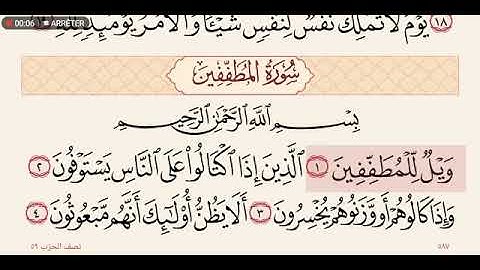 00:06 ARRÊTER
يَوْمَ لَا تَمْلِكُ نَفْسٌ لِّنَفْسٍ شَيْـًٔا وَٱلْأَمْرُ يَوْمَئِذٍ لِّلَّهِ ١٩
سُورَةُ المُطَفِّفِينَ
بِسْمِ ٱللَّهِ ٱلرَّحْمَٰنِ ٱلرَّحِيمِ
وَيْلٌ لِّلْمُطَفِّفِينَ ١ ٱلَّذِينَ إِذَا ٱكْتَالُوا۟ عَلَى ٱلنَّاسِ يَسْتَوْفُونَ ٢
وَإِذَا كَالُوهُمْ أَو وَّزَنُوهُمْ يُخْسِرُونَ ٣ أَلَا يَظُنُّ أُو۟لَٰٓئِكَ أَنَّهُم مَّبْعُوثُونَ ٤
٥٨٧ نصف الحزب ٥٩